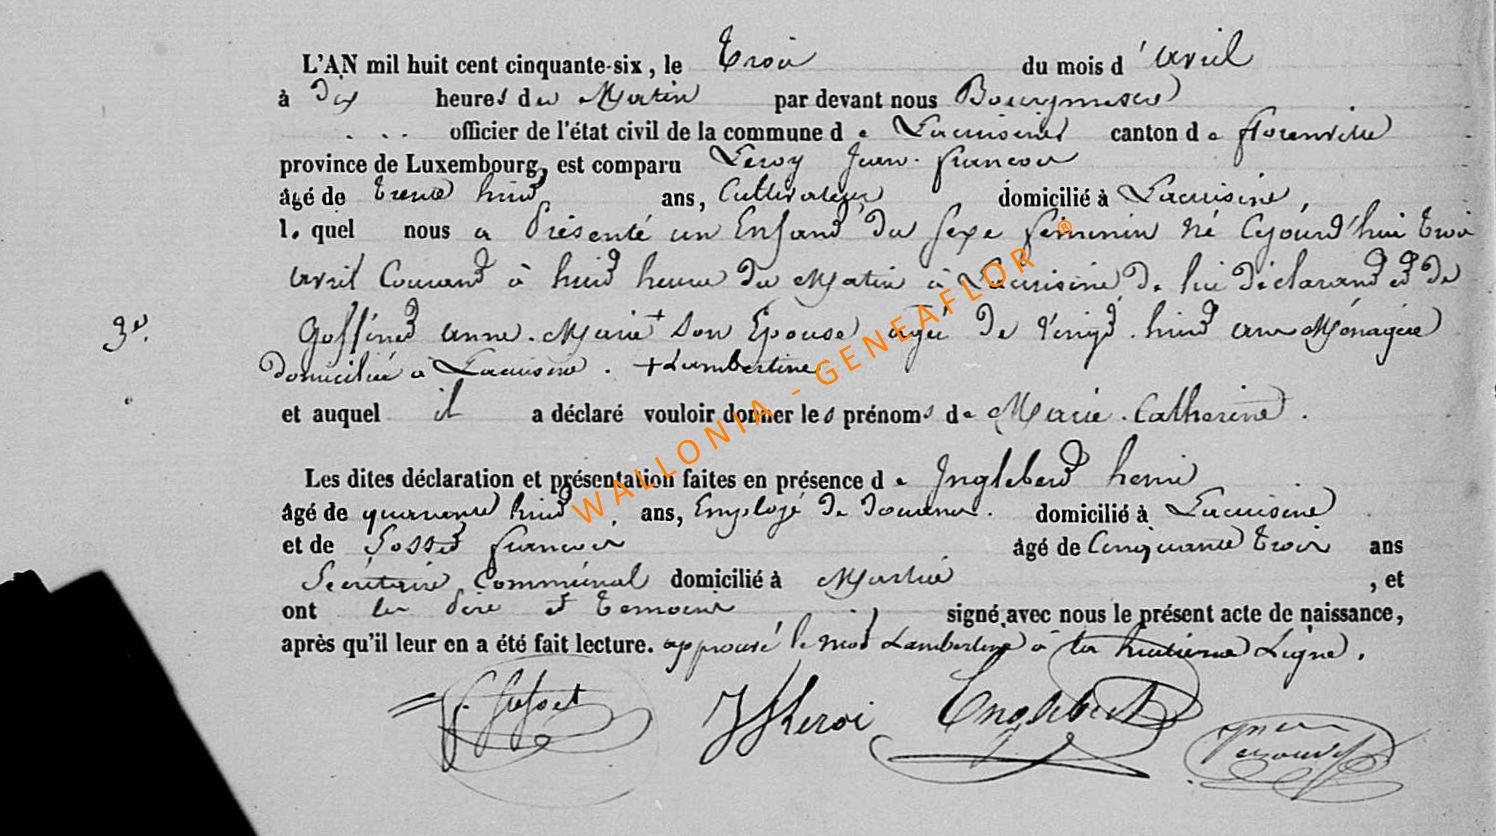 L'AN mil huit cent cinquante-six, le trois du mois d'avril
à Dix heures du Matin par devant nous Bourgmestre
officier de l'état civil de la commune de Lacuisine canton de florenville
province de Luxembourg, est comparu Leroy Jean-françois
âgé de trente huit ans, Cultivateur domicilié à Lacuisine,
lequel nous a Présenté un Enfant du sexe féminin né Cejourd'hui trois
avril Courant à huit heures du Matin à Lacuisine de lui déclarant et de
3e.
Goffinet anne-Marie + son Epouse agée de vingt-huit ans Ménagère
domiciliée à Lacuisine. + Lambertine
et auquel il a déclaré vouloir donner les prénoms de Marie-Catherine.
Les dites déclaration et présentation faites en présence de Inglebert henri
âgé de quarante huit ans, Employé de douanes. domicilié à Lacuisine
et de françois âgé de Cinquante trois ans
Secrétaire Communal domicilié à , et
ont les Père et témoins signé avec nous le présent acte de naissance,
après qu'il leur en a été fait lecture. approuvé le mot Lambertine à la huitième Ligne.
JF Leroi Englebert
WALLONIA - GENEAFLOR ®